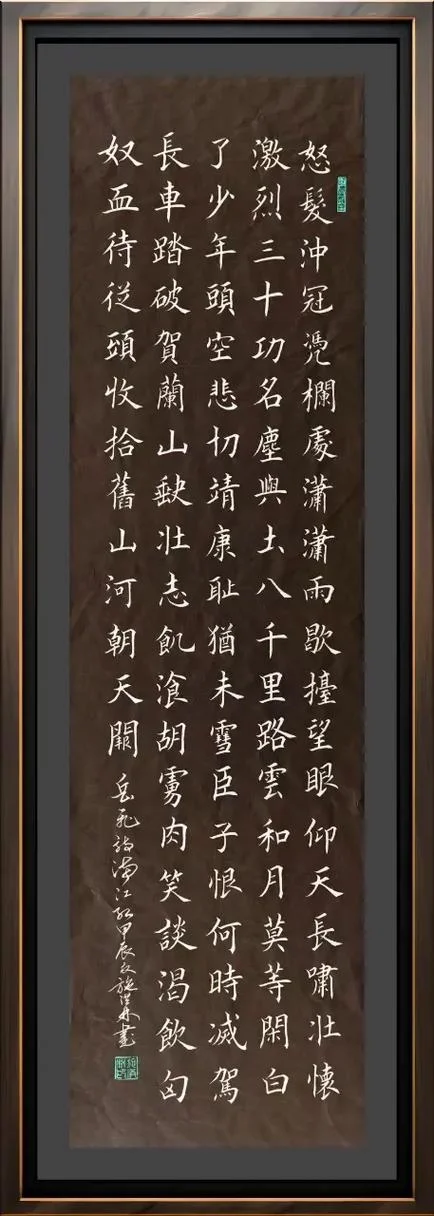 怒髮沖冠凴欄處瀟瀟雨歇擡望眼仰天長嘯壯懷
激烈三十功名塵與土八千里路雲和月莫等閑白
了少年頭空悲切靖康耻猶未雪臣子恨何時滅駕
長車踏破賀蘭山缺壯志飢飡胡虜肉笑談渴飲匈
奴血待從頭收拾舊山河朝天闕
岳飛詞滿江紅甲辰夏施書